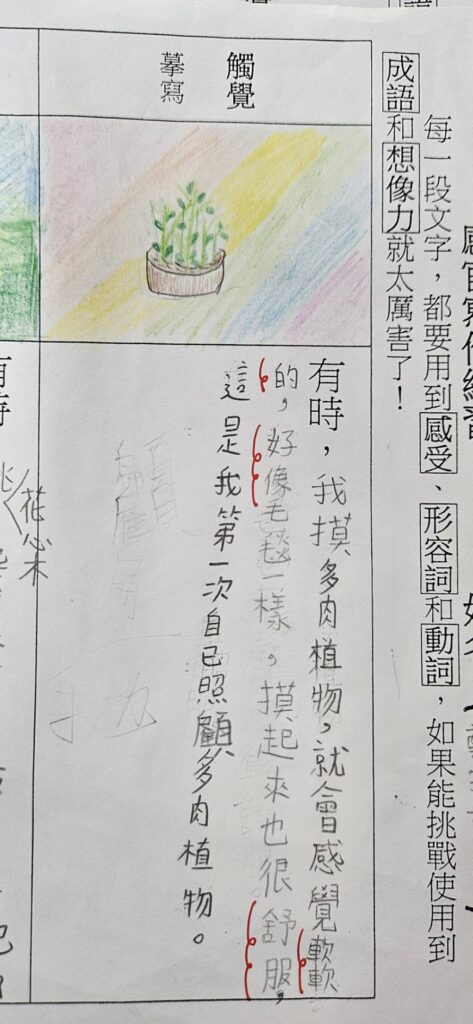 每一段文字，都要用到感受、形容詞和動詞，如果能挑戰使用到
成語和想像力就太厲害了！
觸覺
摹寫
有時，我摸多肉植物，就會感覺軟軟
的，好像毛毯一樣，摸起來也很舒服，
這是我第一次自己照顧多肉植物。
花心木